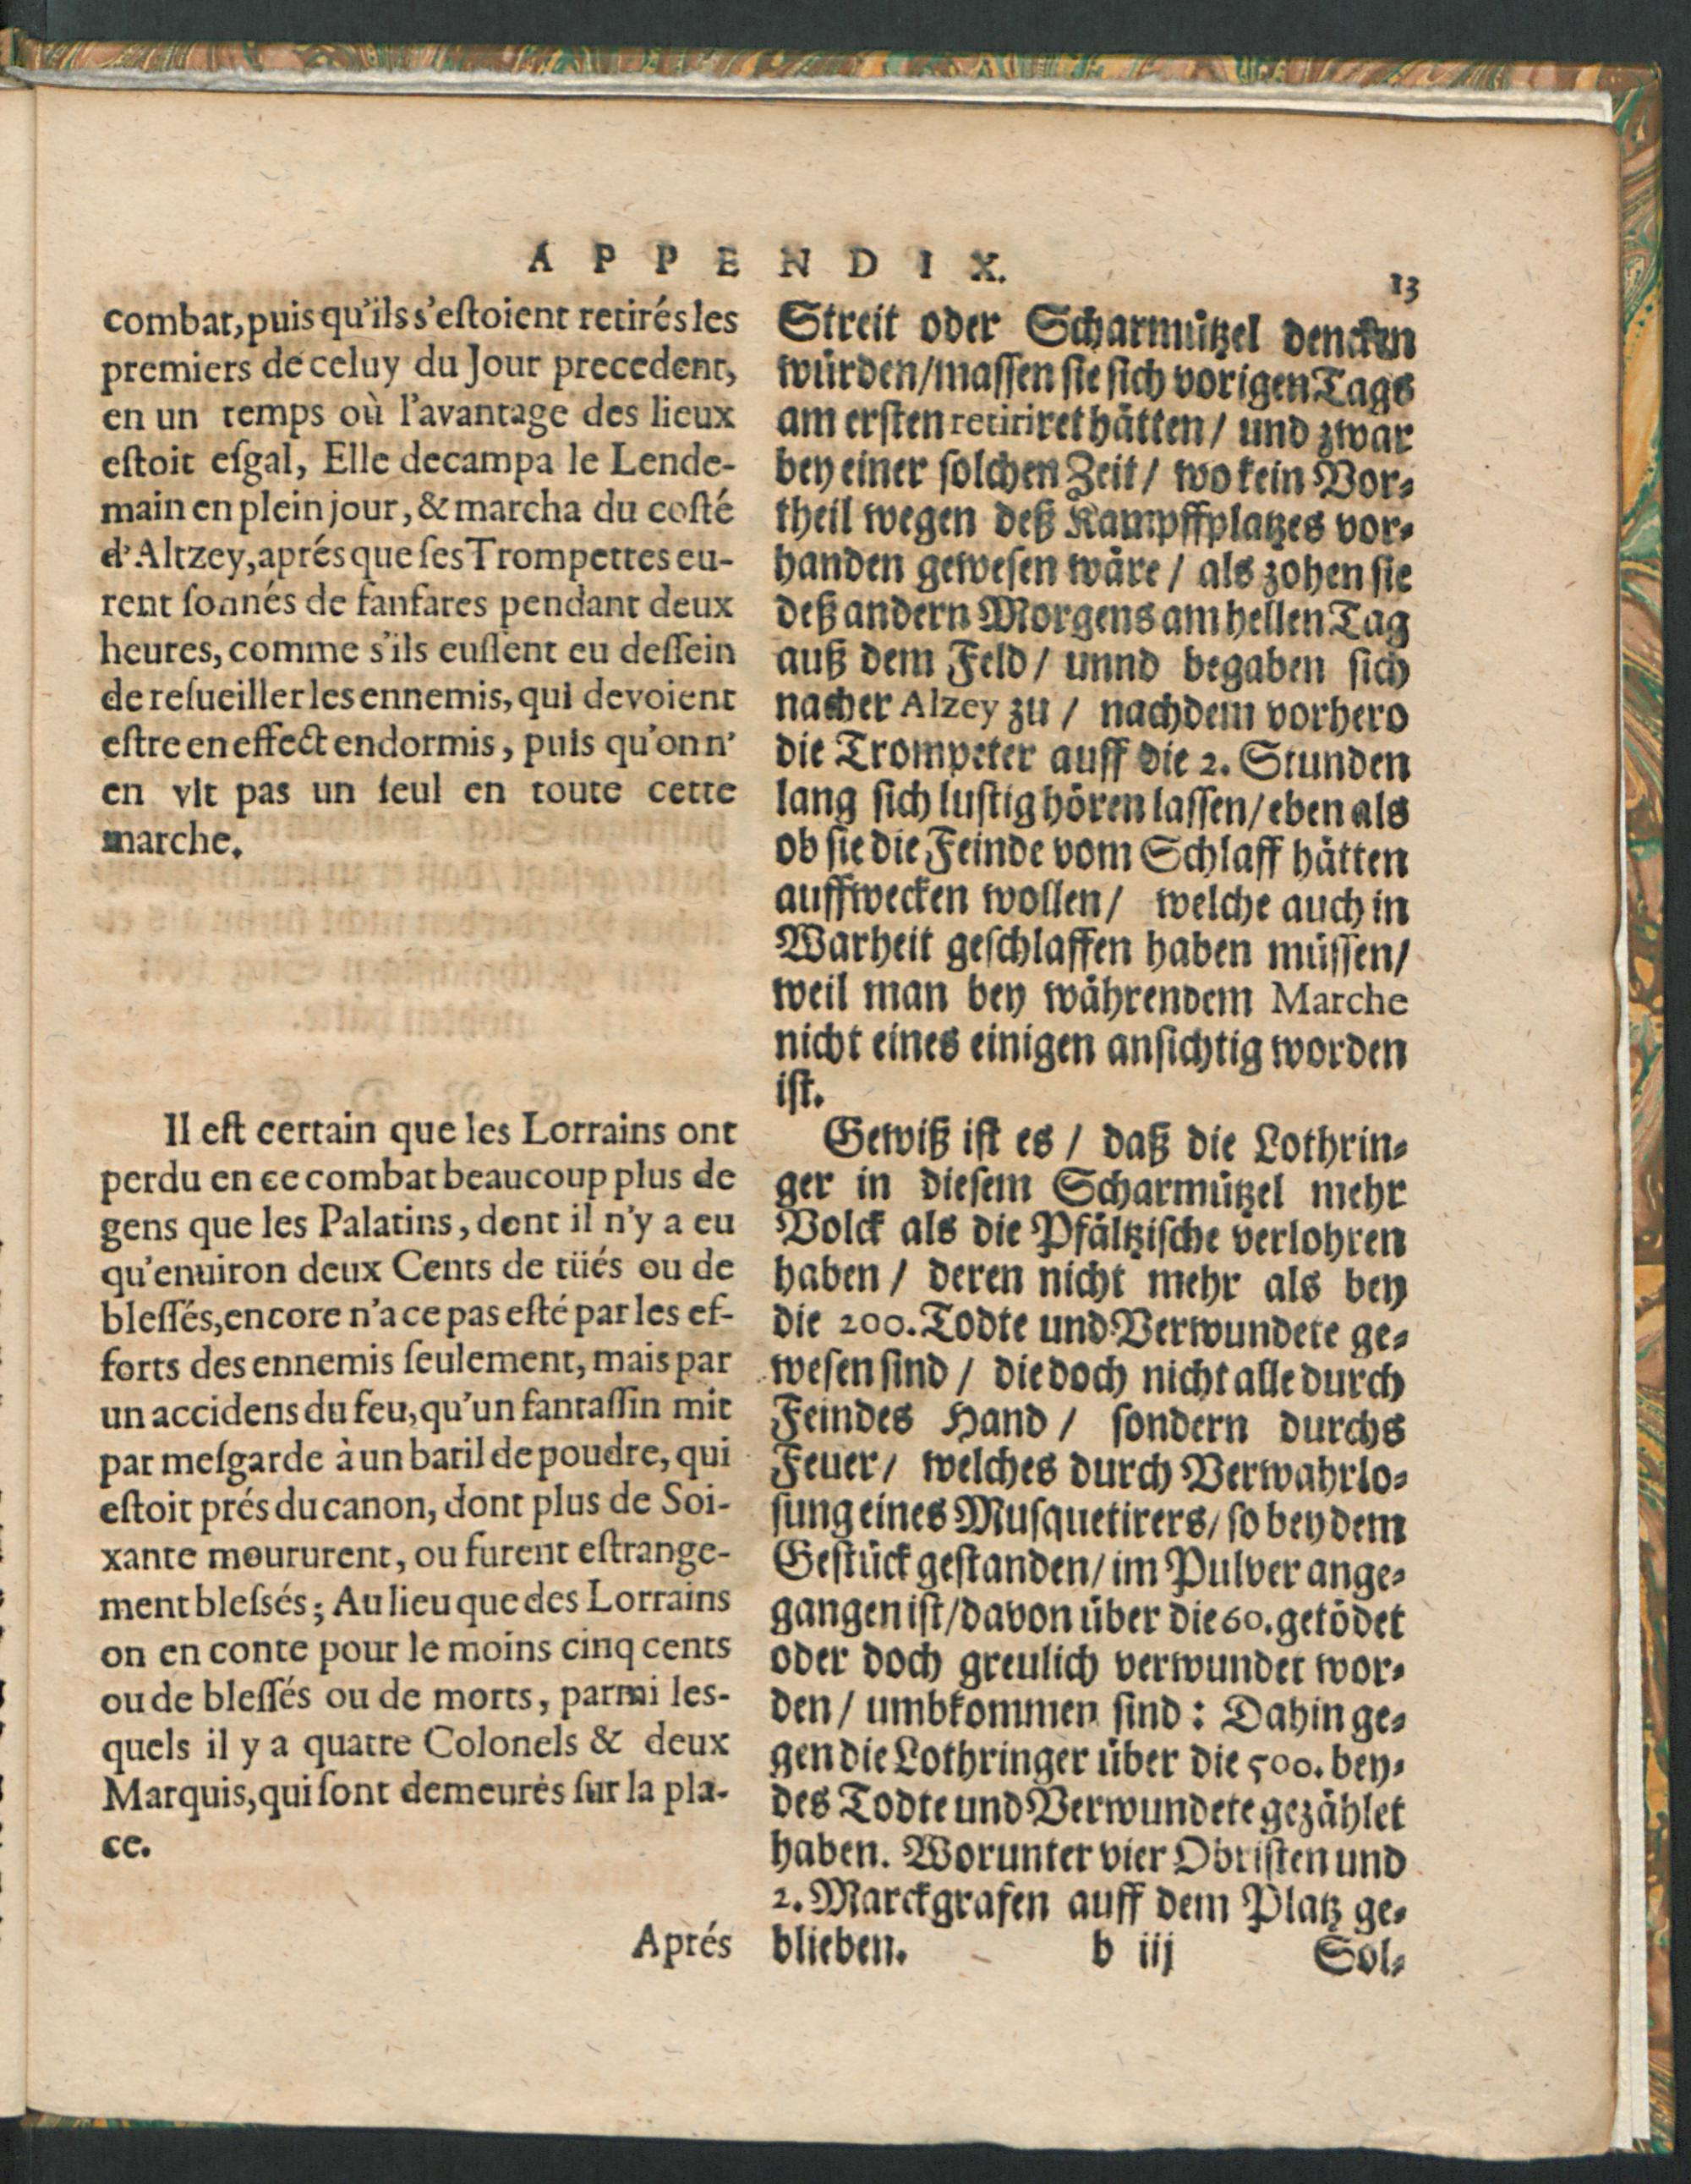 APPENDIX.
13
combat, puis qu'ils s'eſtoient retirés les
premiers de celuy du Jour precedent,
en un temps où l'avantage des lieux
eſtoit eſgal, Elle decampa le Lende-
main en plein jour, & marcha du coſté
d'Altzey, aprés que ſes Trompettes eu-
rent ſonnés de fanfares pendant deux
heures, comme s'ils euſſent eu deſſein
de reſueiller les ennemis, qui devoient
eſtre en effect endormis, puis qu'on n'
en vit pas un ſeul en toute cette
marche.
Il eſt certain que les Lorrains ont
perdu en ce combat beaucoup plus de
gens que les Palatins, dont il n'y a eu
qu'enuiron deux Cents de tüés ou de
bleſſés, encore n'a ce pas eſté par les ef-
forts des ennemis ſeulement, mais par
un accidens du feu, qu'un fantaſſin mit
par meſgarde à un baril de poudre, qui
eſtoit prés du canon, dont plus de Soi-
xante moururent, ou furent eſtrange-
ment bleſsés; Au lieu que des Lorrains
on en conte pour le moins cinq cents
ou de bleſſés ou de morts, parmi les-
quels il y a quatre Colonels & deux
Marquis, qui ſont demeurés ſur la pla-
ce.
Aprés
Streit oder Scharmützel dencken
würden/ maſſen ſie ſich vorigen Tags
am erſten retiriret hätten/ und zwar
bey einer ſolchen Zeit/ wo kein Vor-
theil wegen deß Kampffplatzes vor-
handen geweſen wäre/ als zohen ſie
deß andern Morgens am hellen Tag
auß dem Feld/ unnd begaben ſich
nacher Alzey zu/ nachdem vorhero
die Trompeter auff die 2. Stunden
lang ſich luſtig hören laſſen/ eben als
ob ſie die Feinde vom Schlaff hätten
auffwecken wollen/ welche auch in
Warheit geſchlaffen haben müſſen/
weil man bey währendem Marche
nicht eines einigen anſichtig worden
iſt.
Gewiß iſt es/ daß die Lothrin-
ger in dieſem Scharmützel mehr
Volck als die Pfältziſche verlohren
haben/ deren nicht mehr als bey
die 200. Todte und Verwundete ge-
weſen ſind/ die doch nicht alle durch
Feindes Hand/ ſondern durchs
Feuer/ welches durch Verwahrlo-
ſung eines Muſquetirers/ ſo bey dem
Geſtück geſtanden/ im Pulver ange-
gangen iſt/ davon über die 60. getödet
oder doch greulich verwundet wor-
den/ umbkommen ſind: Dahin ge-
gen die Lothringer über die 500. bey-
des Todte und Verwundete gezählet
haben. Worunter vier Obriſten und
2. Marckgrafen auff dem Platz ge-
blieben.
b iij
Sol-